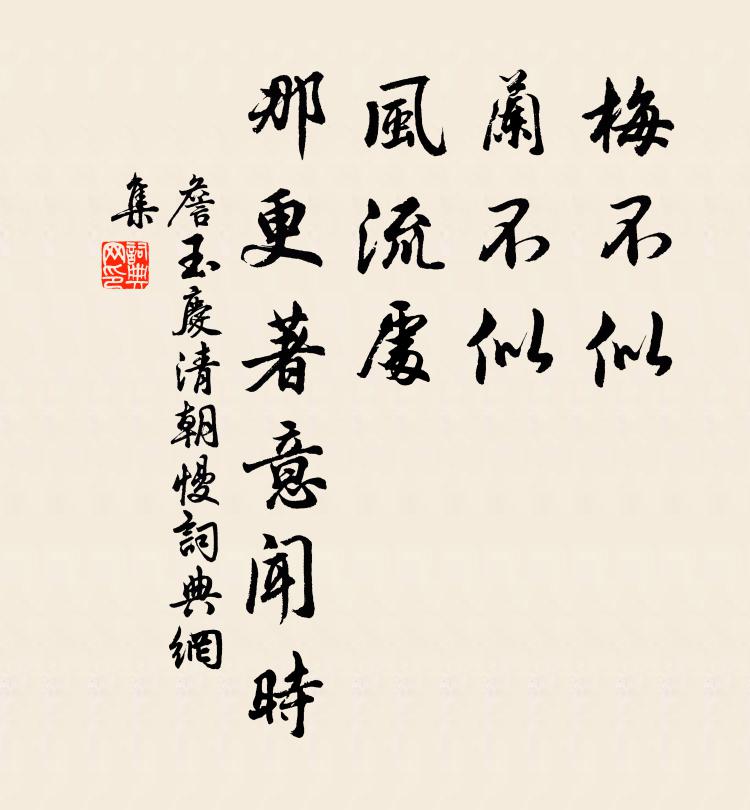 梅不似
蘭不似
風流處
那更著意聞時
詹玉慶清朝慢詞典網
集
詞典
网印